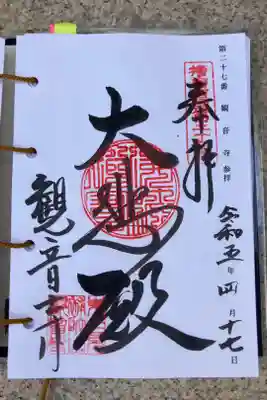 第二十七番 観音寺参拝
奉拝
令和五年四月十七日
大悲殿
観音寺